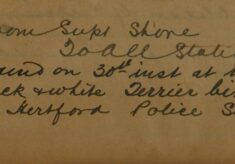 om Supt Shore
To All Stati
und on 30th inst at
ck & white Terrier bi
Hertford Police S